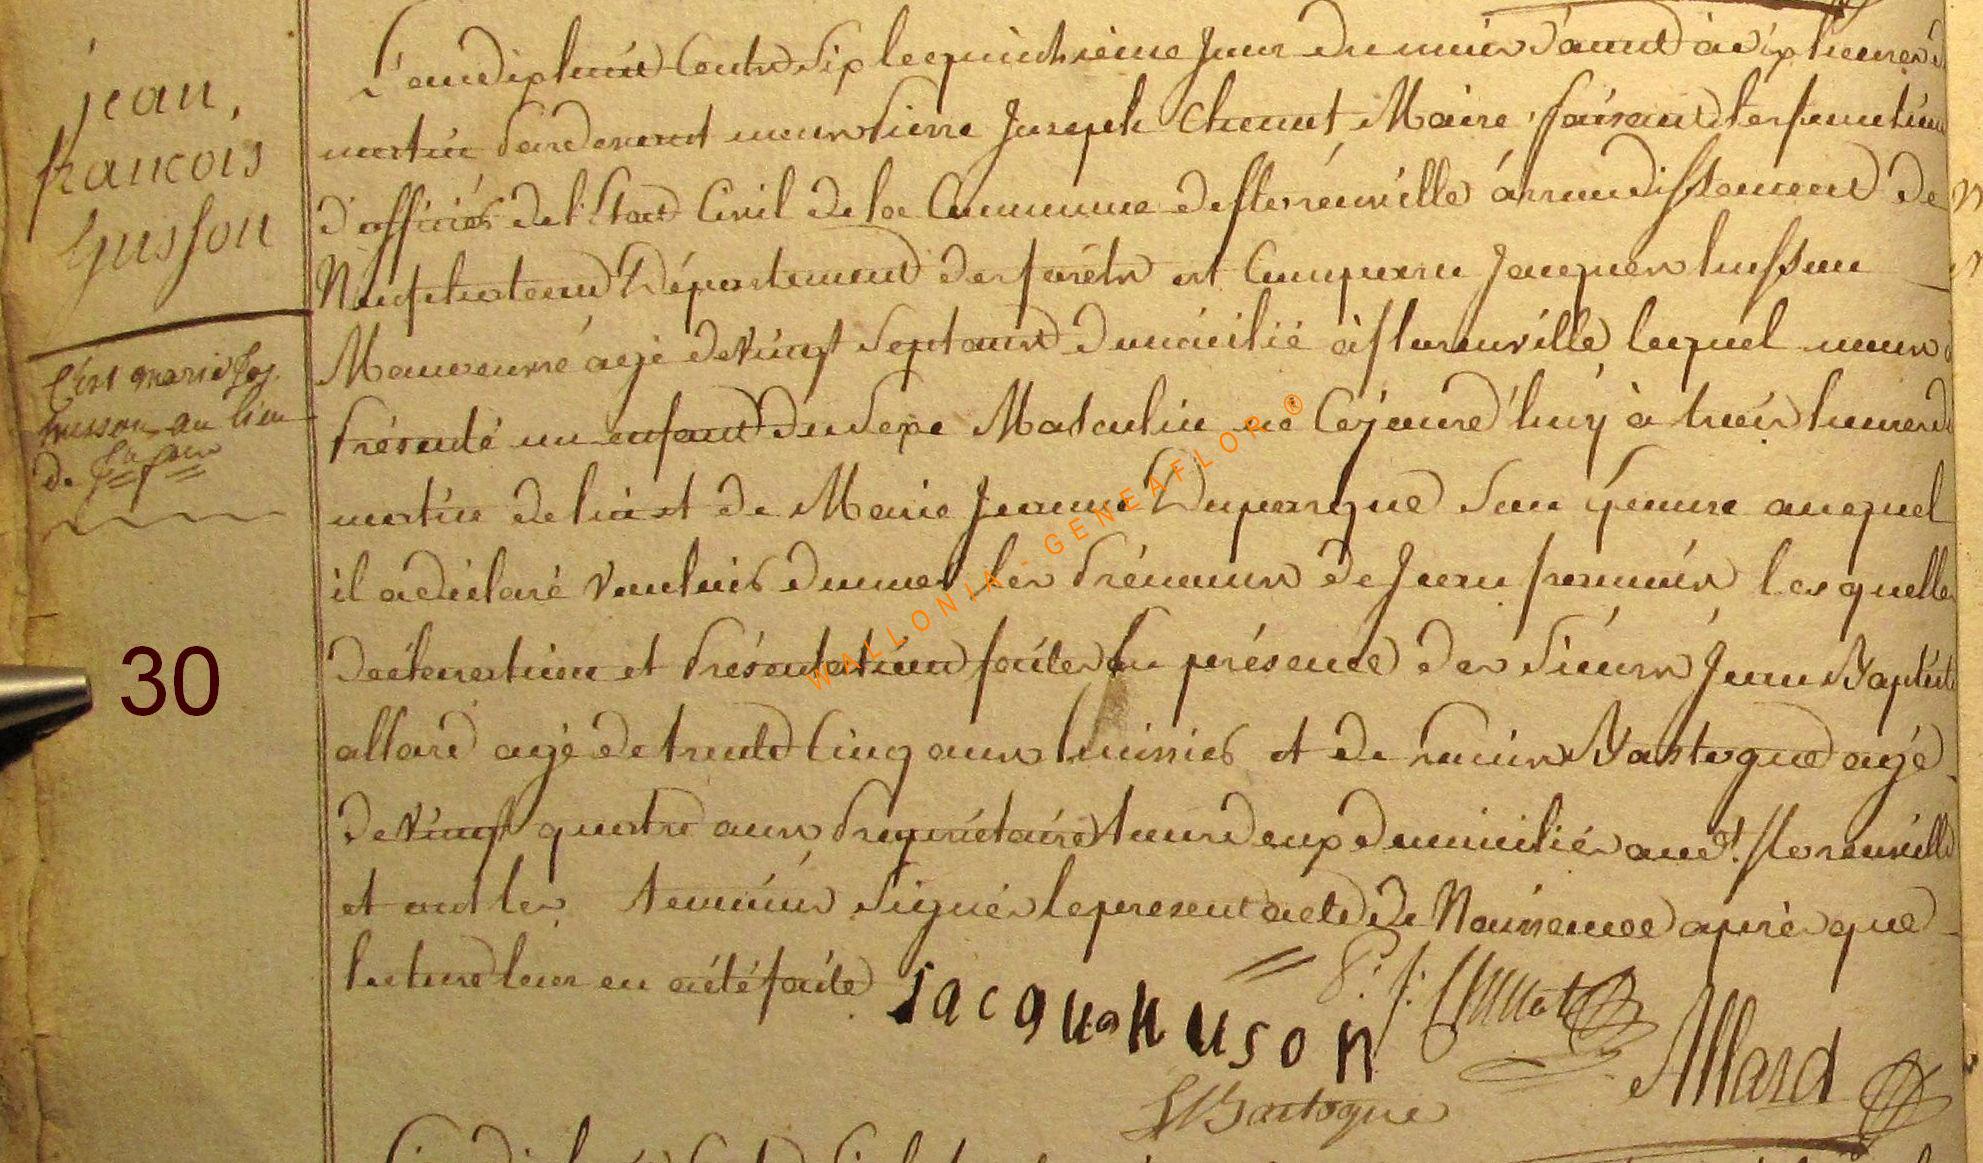 jean,
francois
husson
C'est marie Jos.
husson au lieu
de
30
L'an dix huit Cent Six le quinzieme Jour du mois d'aout à dix heures d
matin Pardevant nous Pierre Joseph Chenut Maire, faisant les fonctions
d'officier de l'Etat Civil de la Commune de florenville arrondissement de
Neufchateau Département des foréts est Comparu Jacques husson
Manoeuvre agé de Vingt Sept ans domicilié à florenville lequel nous a
Présenté un enfant du Sexe Masculin né Cejourd'huy à trois heures d
matin de lui et de Marie Jeanne Duparque Son épouse auquel
il a déclaré Vouloir donner les Prénoms de Jean francois les quelles
déclaration et Présentation faites En présence des Sieurs Jean Baptiste
allard agé de trente Cinq ans huissier et de Bastogne agé
de Vingt quatre ans Propriétaire tous deux domiciliés aud.t florenville
et ont les temoins Signés le present acte de Naissance après que
lecture leur en a été faite
P: J: Chenut
Jacque Huson
Allard
Bastogne
WALLONIA - GENEAFLOR ®